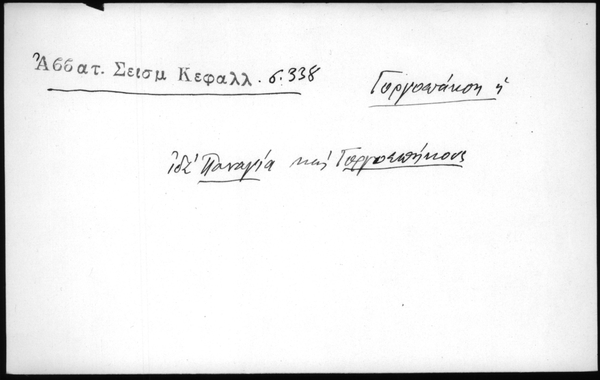 Ἀββατ. Σεισμ Κεφαλλ. σ. 338
Γοργοεπάκοη ἡ
ἰδὲ Παναγία καὶ Γοργοεπήκοος